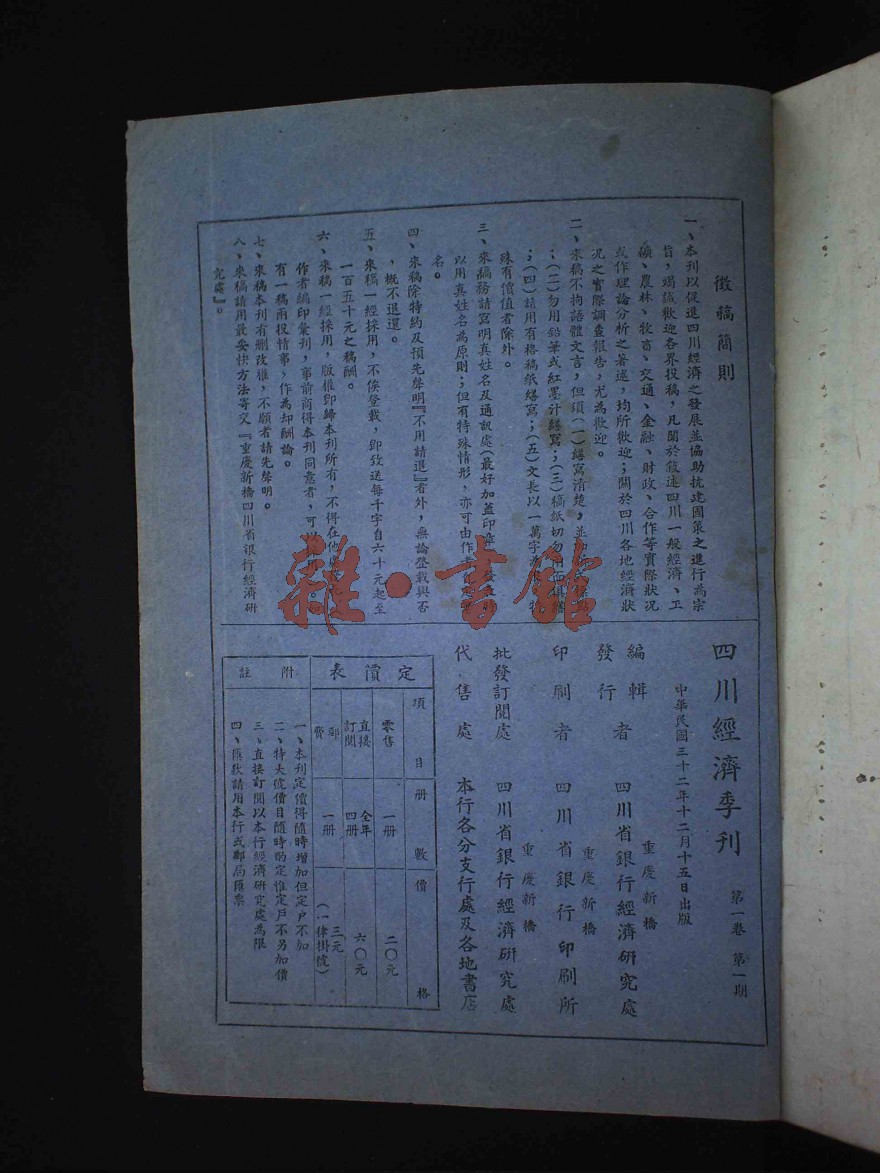 徵稿簡則
一、本刊以促進四川經濟之發展並協助抗建國策之進行為宗
旨，竭誠歡迎各界投稿，凡關於敘述四川一般經濟、工
礦、農林、牧畜、交通、金融、財政、合作等實際狀況
或作理論分析之著述，均所歡迎；關於四川各地經濟狀
況之實際調查報告，尤為歡迎。
二、來稿不拘語體文言，但須（一）繕寫清楚，並
；（二）勿用鉛筆或紅墨汁繕寫；（三）稿紙切勿
；（四）請用有格稿紙繕寫；（五）文長以一萬字為
殊有價值者除外。
三、來稿務請寫明真姓名及通訊處（最好加蓋印
以用真姓名為原則；但有特殊情形，亦可由作
名。
四、來稿除特約及預先聲明『不用請退』者外，無論登載與否
，概不退還。
五、來稿一經採用，不俟登載，即致送每千字自六十元起至
一百五十元之稿酬。
六、來稿一經採用，版權即歸本刊所有，不得在他
作者編印彙刊，事前商得本刊同意者，可
有一稿兩投情事，作為却酬論。
七、來稿本刊有删改權，不願者請先聲明。
八、來稿請用最妥快方法寄交『重慶新橋四川省銀行經濟研
究處』。
四川經濟季刊
第一卷 第一期
中華民國三十二年十二月十五日出版
重慶新橋
編輯者 四川省銀行經濟研究處
發行
重慶新橋
印刷者 四川省銀行印刷所
重慶新橋
批發訂閱處 四川省銀行經濟研究處
代售處 本行各分支行處及各地書店
定價表
項目 冊數 價格
零售 一冊 二〇元
直接訂閱 全年四冊 六〇元
郵費 一冊 三元（一律掛號）
附註
一、本刊定價得隨時增加但定戶不加
二、特大號價目隨時酌定惟定戶不另加價
三、直接訂閱以本行經濟研究處為限
四、匯款請用本行或郵局匯票
雜·書館